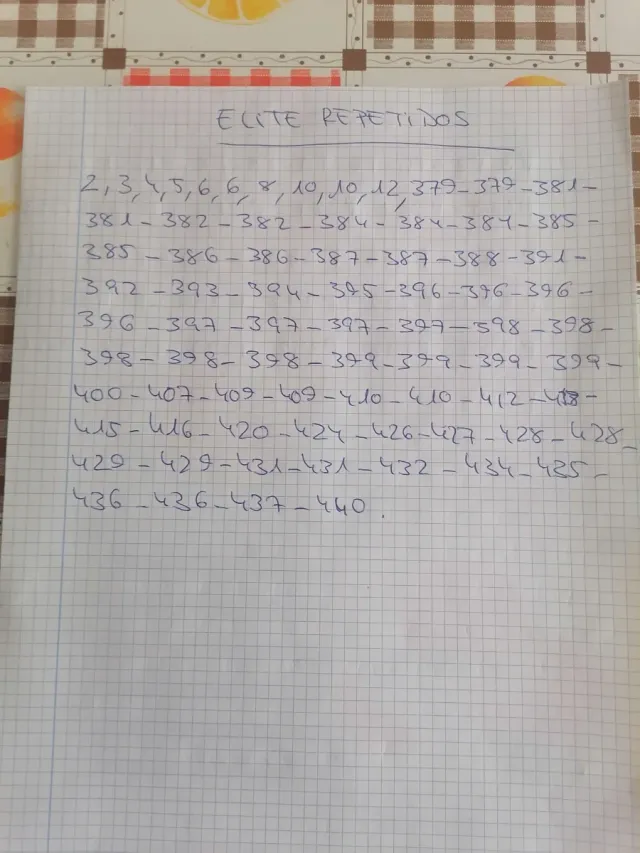 ELITE REPETIDOS
2, 3, 4, 5, 6, 6, 8, 10, 10, 12, 379 - 379 - 381 -
381 - 382 - 382 - 384 - 384 - 384 - 385 -
385 - 386 - 386 - 387 - 387 - 388 - 391 -
392 - 393 - 394 - 395 - 396 - 396 - 396 -
396 - 397 - 397 - 397 - 397 - 398 - 398 -
398 - 398 - 398 - 399 - 399 - 399 - 399 -
400 - 407 - 409 - 409 - 410 - 410 - 412 -
415 - 416 - 420 - 424 - 426 - 427 - 428 - 428 -
429 - 429 - 431 - 431 - 432 - 434 - 435 -
436 - 436 - 437 - 440.